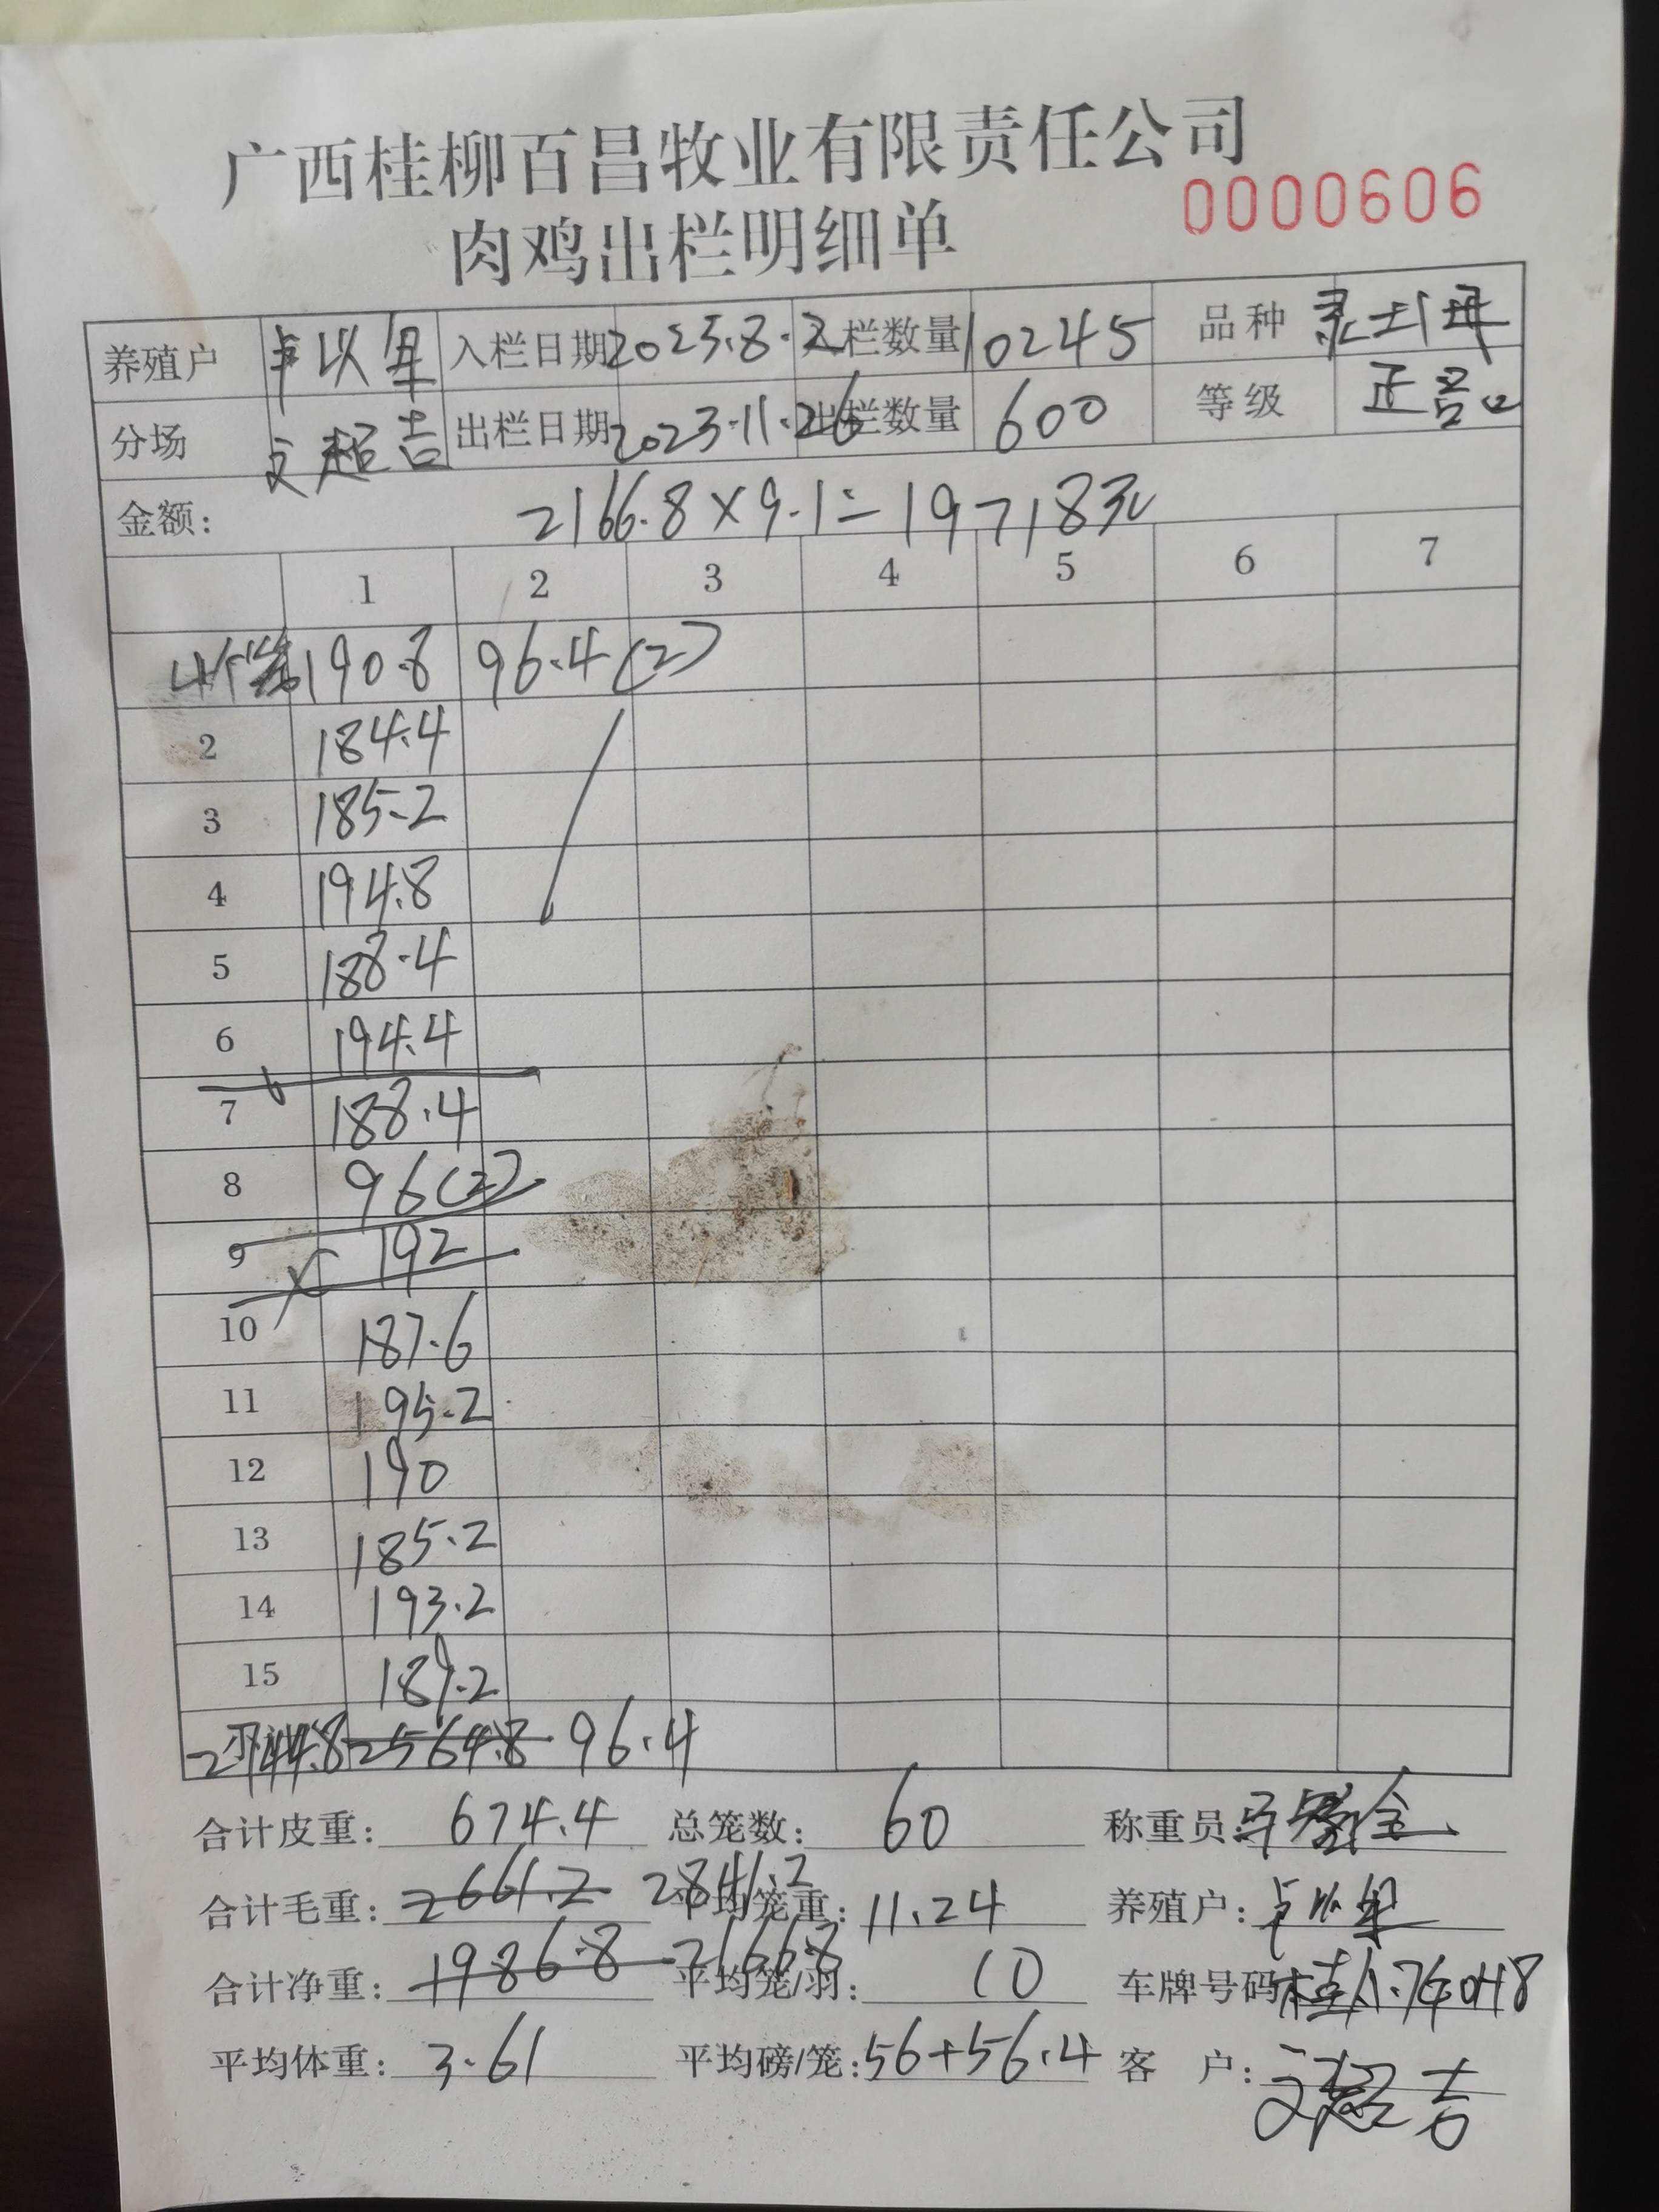 广西桂柳百昌牧业有限责任公司
0000606
肉鸡出栏明细单
养殖户 卢以军 入栏日期 2023.8.2 入栏数量 10245 品种 灵土1母
分场 文超吉 出栏日期 2023.11.26 出栏数量 600 等级 正品
金额: 2166.8×9.1=19718元
1 2 3 4 5 6 7
4个笼 190.8 96.4(2)
2 184.4
3 185.2
4 194.8
5 188.4
6 194.4
7 188.4
8 96(2)
9 192
10 187.6
11 195.2
12 190
13 185.2
14 193.2
15 189.2
2744.8 2564.8 96.4
合计皮重: 674.4 总笼数: 60 称重员:
合计毛重: 2661.2 2841.2 平均笼重: 11.24 养殖户: 卢以军
合计净重: 1986.8 2166.8 平均笼/羽: 10 车牌号码
平均体重: 3.61 平均磅/笼: 56+56.4 客 户: 文超吉